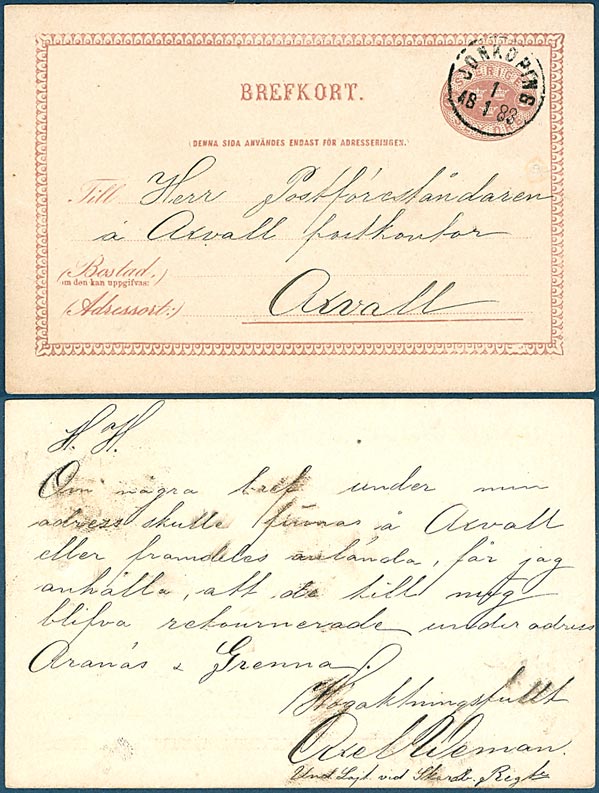 BREFKORT.
SVERIGE
JÖNKÖPING
1
18 1 83
(DENNA SIDA ANVÄNDES ENDAST FÖR ADRESSERINGEN.)
Till Herr Postföreståndaren
å Axvall postkontor
(Bostad,)
om den kan uppgifvas:
Axvall
(Adressort:)
H. H.
Om några bref under min
adress skulle finnas å Axvall
eller framdeles anlända, får jag
anhålla, att de till mig
blifva retournerade under adress
Aranäs & Grenna.
Högaktningsfullt
Axel Weman.
Und. Löjt. vid Skarab. Regte